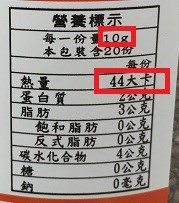 營養標示
每一份量10g
本包裝含20份
每份
熱量 44大卡
蛋白質 2公克
脂肪 3公克
飽和脂肪 0公克
反式脂肪 0公克
碳水化合物 4公克
糖 0公克
鈉 0毫克